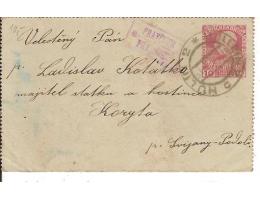 Velectěný Pán
p. Ladislav Kolátko
majitel statku a hostince
Koryta
p. Svijany-Podolí
10